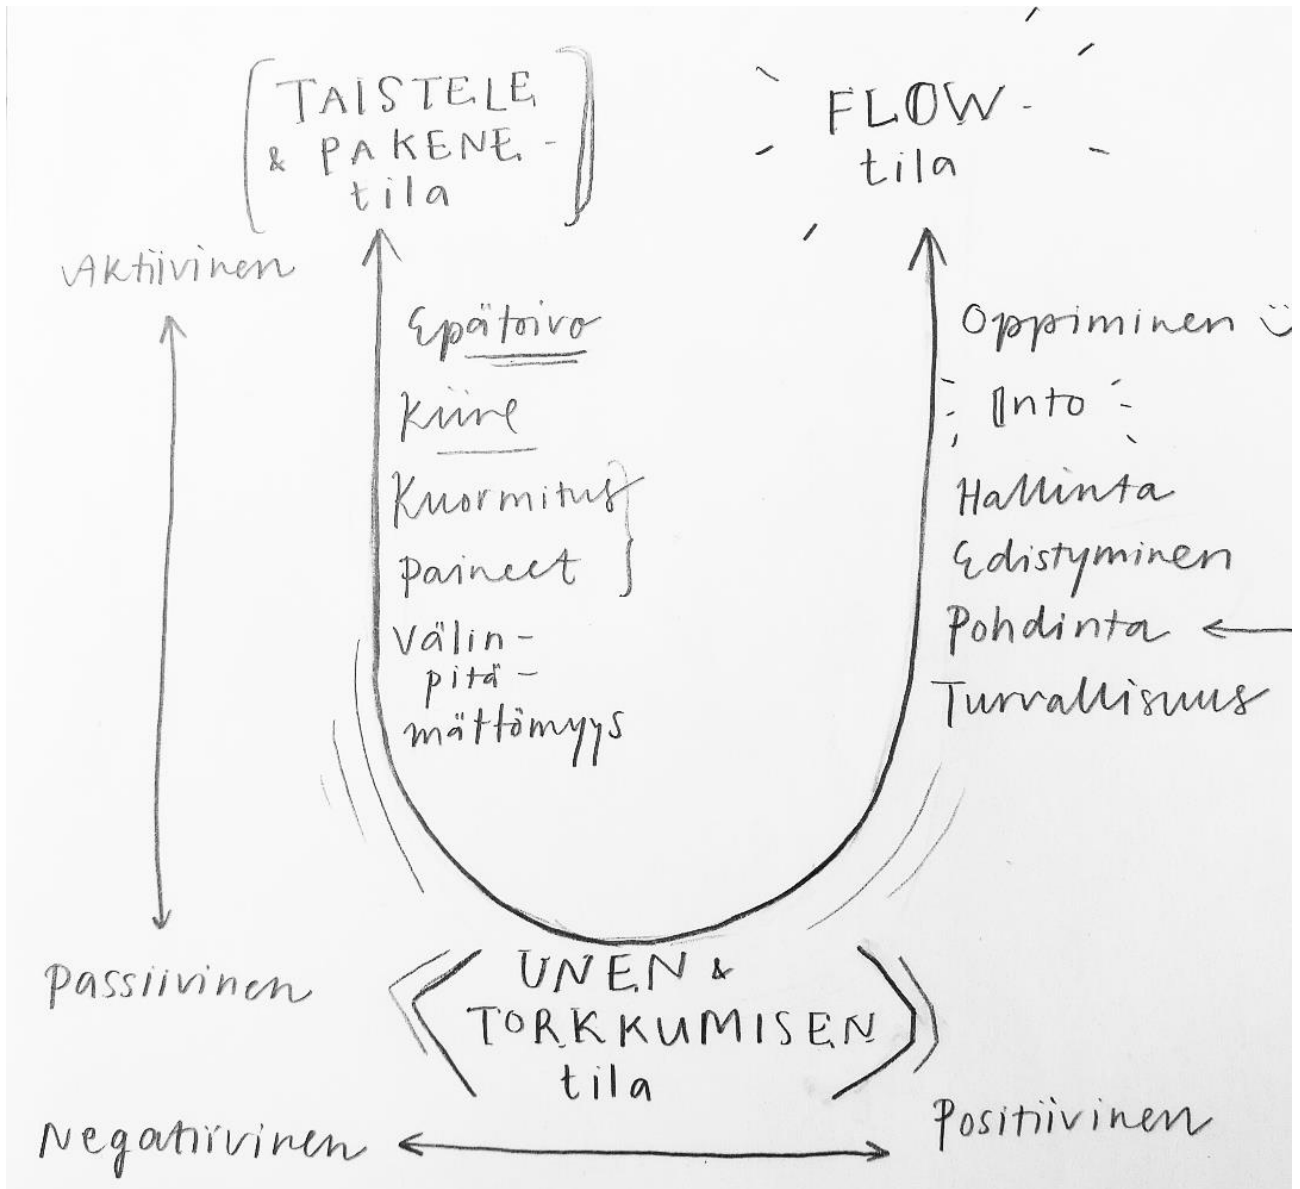 TAISTELE
& PAKENE-
tila
FLOW-
tila
Aktiivinen
Epätoivo
Kiire
Kuormitus
Paineet
Välin-
pitä-
mättömyys
Oppiminen
Into
Hallinta
Edistyminen
Pohdinta
Turvallisuus
Passiivinen
UNEN &
TORKKUMISEN
tila
Negatiivinen
Positiivinen